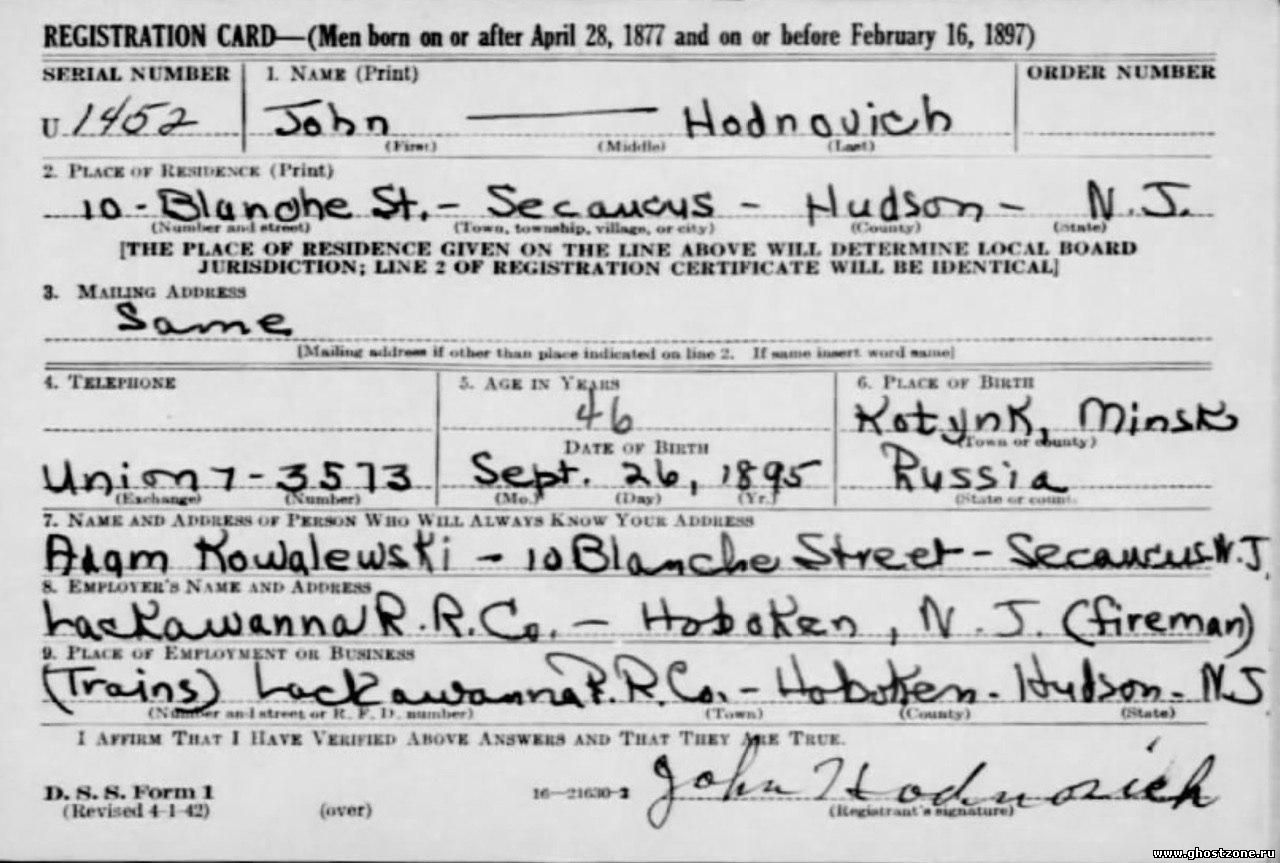 REGISTRATION CARD—(Men born on or after April 28, 1877 and on or before February 16, 1897)
SERIAL NUMBER 1. NAME (Print) ORDER NUMBER
U 1452 John — Hodnovich
(First) (Middle) (Last)
2. PLACE OF RESIDENCE (Print)
10 - Blanche St. - Secaucus - Hudson - N.J.
(Number and street) (Town, township, village, or city) (County) (State)
[THE PLACE OF RESIDENCE GIVEN ON THE LINE ABOVE WILL DETERMINE LOCAL BOARD
JURISDICTION; LINE 2 OF REGISTRATION CERTIFICATE WILL BE IDENTICAL]
3. MAILING ADDRESS
Same
[Mailing address if other than place indicated on line 2. If same insert word same]
4. TELEPHONE 5. AGE IN YEARS 6. PLACE OF BIRTH
46 Kotynk, Minsk
DATE OF BIRTH (Town or county)
Union 7-3573 Sept. 26, 1895 Russia
(Exchange) (Number) (Mo.) (Day) (Yr.) (State or
7. NAME AND ADDRESS OF PERSON WHO WILL ALWAYS KNOW YOUR ADDRESS
Adam Kowalewski - 10 Blanche Street - Secaucus N.J.
8. EMPLOYER'S NAME AND ADDRESS
Lackawanna R.R. Co. - Hoboken, N.J. (fireman)
9. PLACE OF EMPLOYMENT OR BUSINESS
(Trains) Lackawanna R.R. Co. - Hoboken - Hudson - N.J
(Number and street or R. F. D. number) (Town) (County) (State)
I AFFIRM THAT I HAVE VERIFIED ABOVE ANSWERS AND THAT THEY ARE TRUE.
D. S. S. Form 1
(Revised 4-1-42) (over) 16—21630-2 John Hodnovich
(Registrant's signature)
www.ghostzone.ru